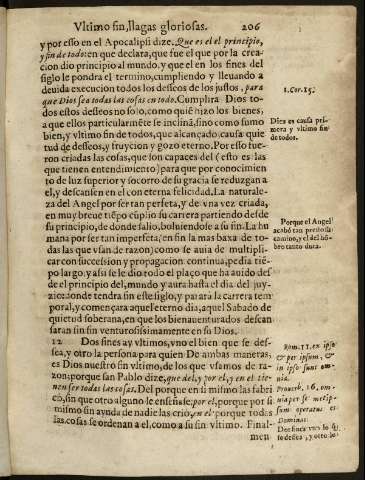 Vltimo fin, llagas gloriosas. 206
y por esso en el Apocalipsi dize. Que es el el principio,
y fin de todo: en que declara, que fue el que por la crea-
cion dio principio al mundo. y que el en los fines del
siglo le pondra el termino, cumpliendo y lleuando a
deuida execucion todos los desseos de los justos, para
que Dios sea todas las cosas en todo. Cumplira Dios to-
dos estos desseos no solo, como quiē hizo los bienes;
a que ellos particularmēte se inclinā, sino como sumo
bien, y vltimo fin de todos, que alcançado causa quie
tud de desseos, y fruycion y gozo eterno. Por esso fue-
ron criadas las cosas, que son capaces del (esto es las
que tienen entendimiento) para que por conocimien
to de luz superior y socorro de su gracia se reduzgan a
el, y descansen en el con eterna felicidad. La naturale-
za del Angel por ser tan perfeta, y de vna vez criada,
en muy breue tiēpo cūplio su carrera partiendo desde
su principio, de donde salio, boluiendose a su fin. La hu
mana por ser tan imperfeta, en fin la mas baxa de to-
das las que vsan de razon; como se auia de multipli-
car con successiō y propagacion continua, pedia tiē-
po largo. y assi se le dio todo el plaço que ha auido des
de el principio del mundo y aura hasta el dia del juy-
zio: donde tendra fin este siglo, y parara la carrera tem
poral, y començara aquel eterno dia, aquel Sabado de
quietud soberana, en que los bienauenturados descan
saran sin fin venturosissimamente en su Dios.
12 Dos fines ay vltimos, vno el bien que se des-
sea, y otro la persona para quien. De ambas maneras,
es Dios nuestro fin vltimo, de los que vsamos de ra-
zon; porque san Pablo dize, que del, y por el, y en el tie-
nen ser todas las cosas. Del porque en si mismo las fabri
cò, sin que otro alguno le enseñase; por el, porque por si
mismo sin ayuda de nadie las crio, en el porque todas
las cosas se ordenan a el, como a su fin vltimo. Final-
men
1. Cor. 15.
Dios es causa pri-
mera y vltimo fin
de todos.
Porque el Angel
acabò tan presto su
camino, y el del hō-
bre tanto dura.
Rom. 11. ex ipso
& per ipsum, &
in ipso sunt om-
nia.
Prouerb. 16. om-
nia per se metip-
sum operatus es
Dominus.